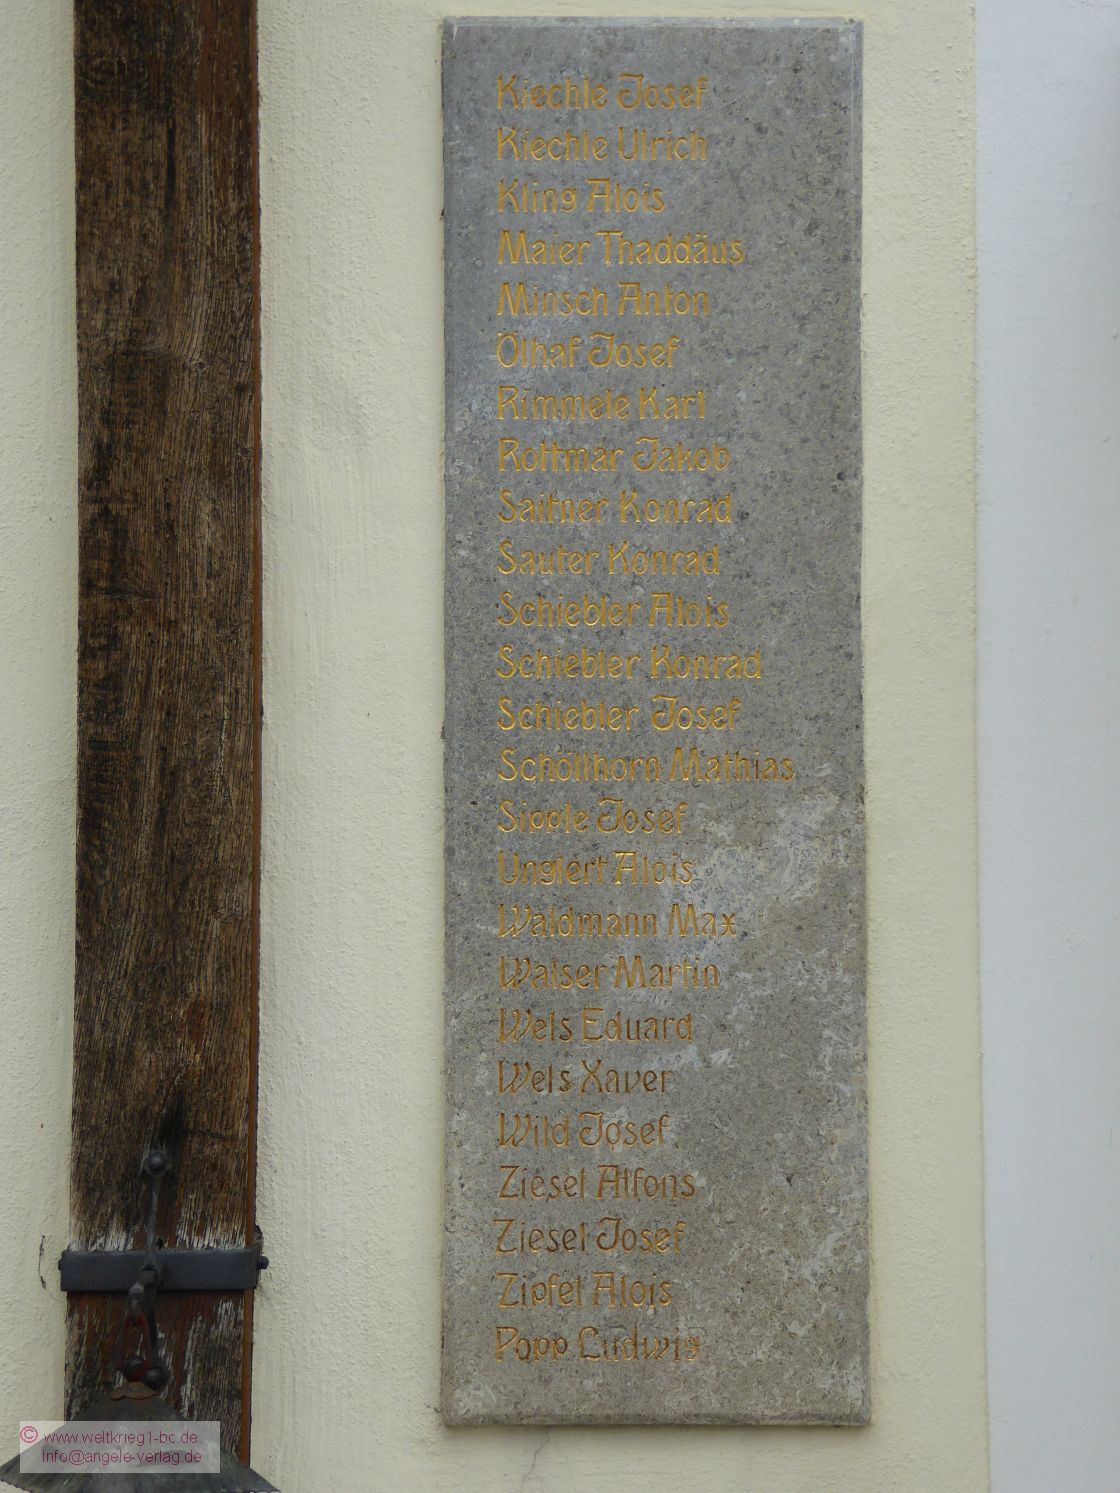 Kiechle Josef
Kiechle Ulrich
Kling Alois
Maier Thaddäus
Minsch Anton
Ölhaf Josef
Rimmele Karl
Rottmar Jakob
Saitner Konrad
Sauter Konrad
Schiebler Alois
Schiebler Konrad
Schiebler Josef
Schöllhorn Mathias
Sipple Josef
Unglert Alois
Waldmann Max
Walser Martin
Wels Eduard
Wels Xaver
Wild Josef
Ziesel Alfons
Ziesel Josef
Zipfel Alois
Popp Ludwig
© www.weltkrieg1-bc.de
info@angele-verlag.de